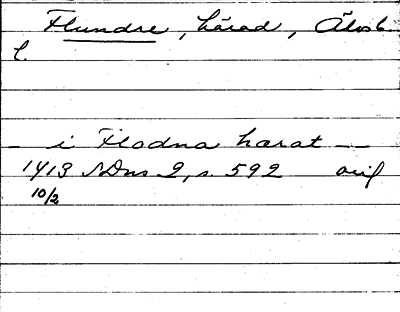 Flundre, härad, Älvsb.
l.
- i Flodna hærat --
1413 SDns 2, s. 592 orig
10/2